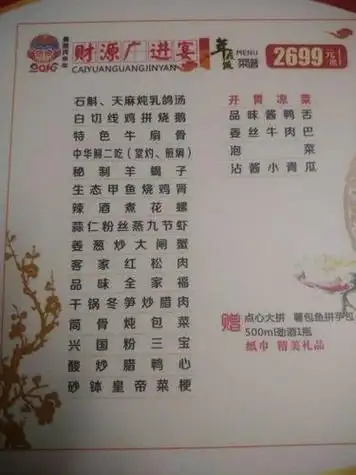 2016
财源广进宴
CAIYUANGUANGJINYAN
年夜饭
MENU
菜谱
2699元/席
石斛、天麻炖乳鸽汤
白切线鸡拼烧鹅
特色牛扇骨
中华鲟二吃（堂灼、煎焗）
秘制羊蝎子
生态甲鱼烧鸡肾
辣酒煮花螺
蒜仁粉丝蒸九节虾
姜葱炒大闸蟹
客家红松肉
品味全家福
干锅冬笋炒腊肉
筒骨炖包菜
兴国粉三宝
酸炒腊鸭心
砂钵皇帝菜梗
开胃凉菜
品味酱鸭舌
姜丝牛肉巴
泡菜
沾酱小青瓜
赠
点心大拼 薯包鱼拼芋包
500ml劲酒1瓶
纸巾 精美礼品